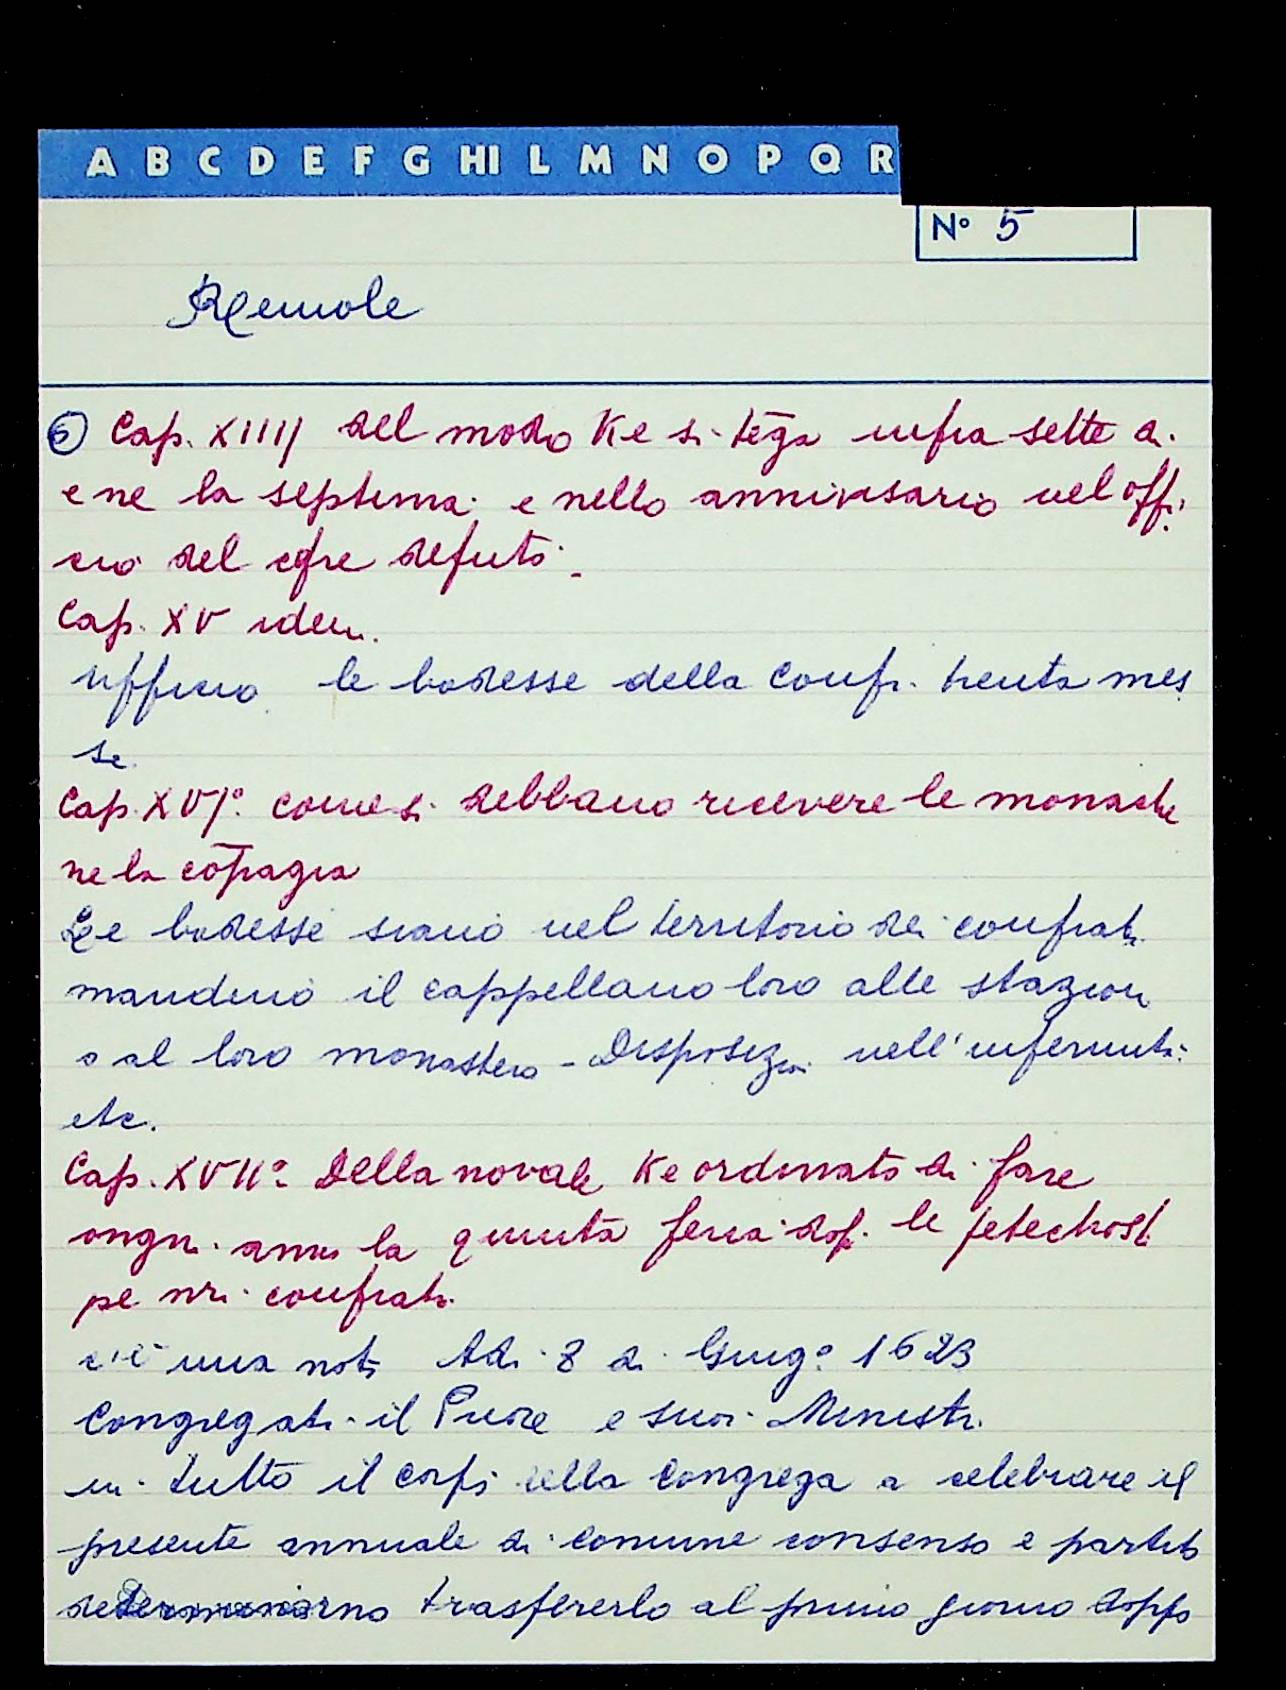 A B C D E F G HI L M N O P Q R
N° 5
Remole
5 Cap. XIIII del modo Ke si tēga infra sette di
e ne la septima e nello anniversario nel offi
cio del cōfre defuto.
Cap. XV idem.
ufficio le badesse della confr. trenta mes
se.
Cap. XVI° come si debbano ricevere le monache
ne la cōpagia
Le badesse siano nel territorio dei confrati
mandino il cappellano loro alle stazioni
o al loro monastero - Disposizni nell'infermità
etc.
Cap. XVII° Della novale Ke ordinato di fare
ongni anno la quinta feria dop. le petechosti
pe nri confrati.
c'è una nota Adi 8 di Giug° 1623
Congregati il Priore e suoi Ministri
in tutto il corpo della Congrega a celebrare il
presente annuale di comune consenso e partito
determinorno trasferirlo al primo giorno doppo